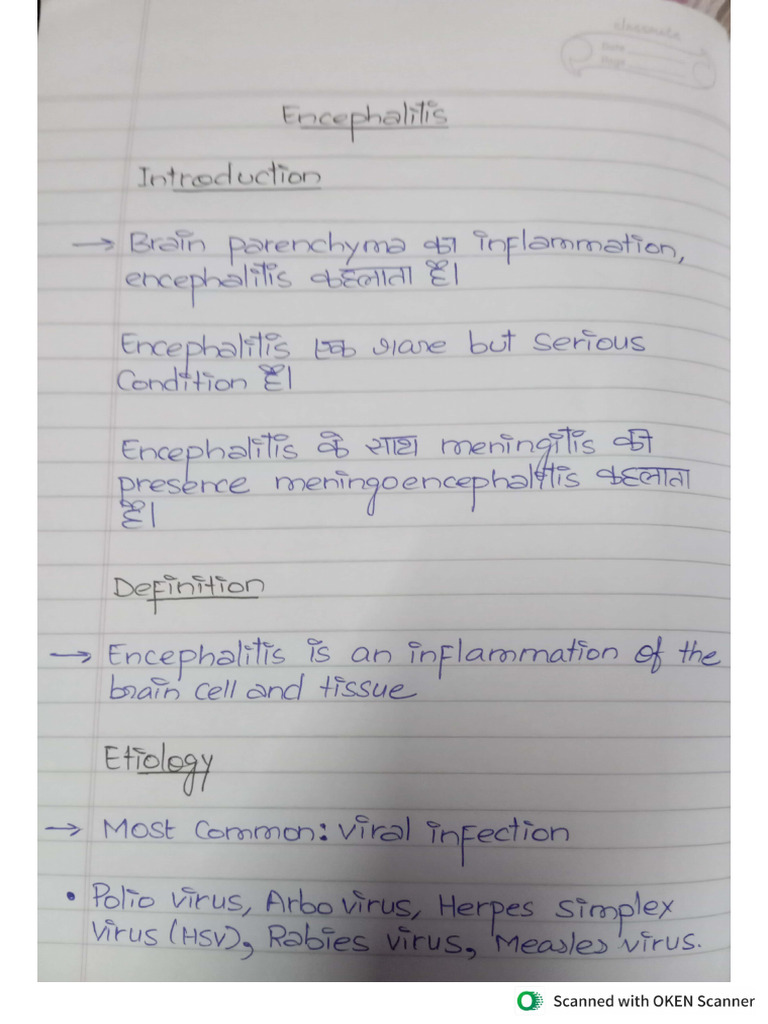 classmate
Date
Page
Encephalitis
Introduction
→ Brain parenchyma का inflammation,
encephalitis कहलाता है।
Encephalitis एक rare but serious
Condition है।
Encephalitis के साथ meningitis की
presence meningoencephalitis कहलाता
है।
Definition
→ Encephalitis is an inflammation of the
brain cell and tissue
Etiology
→ Most Common: Viral infection
• Polio virus, Arbo virus, Herpes simplex
virus (HSV), Rabies virus, Measles virus.
Scanned with OKEN Scanner